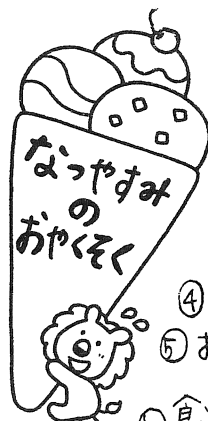 なつやすみ
の
おやくそく
④
⑤お